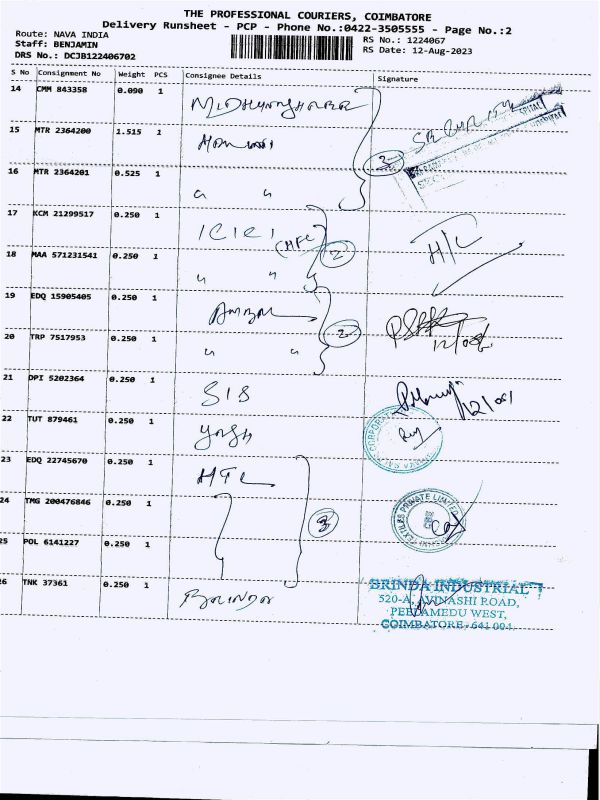 THE PROFESSIONAL COURIERS, COIMBATORE
Delivery Runsheet - PCP - Phone No.:0422-3505555 - Page No.:2
Route: NAVA INDIA
Staff: BENJAMIN
DRS No.: DCJB122406702
RS No.: 1224067
RS Date: 12-Aug-2023
S No Consignment No Weight PCS Consignee Details Signature
14 CMM 843358 0.090 1
15 MTR 2364200 1.515 1
3
16 MTR 2364201 0.525 1 " "
17 KCM 21299517 0.250 1 ICICI
(MFC) 2 H/C
18 MAA 571231541 0.250 1 " "
19 EDQ 15905405 0.250 1
2 12/08
20 TRP 7517953 0.250 1 " "
21 DPI 5202364 0.250 1 SIS
12/08/
22 TUT 879461 0.250 1 yash
CORPORAT
23 EDQ 22745670 0.250 1 HTL
24 TMG 200476846 0.250 1 3
TEXTILES PRIVATE LIMITED
25 POL 6141227 0.250 1
26 TNK 37361 0.250 1 BRINDA
BRINDA INDUSTRIAL
520-A, AVINASHI ROAD,
PEELAMEDU WEST,
COIMBATORE- 641 004.